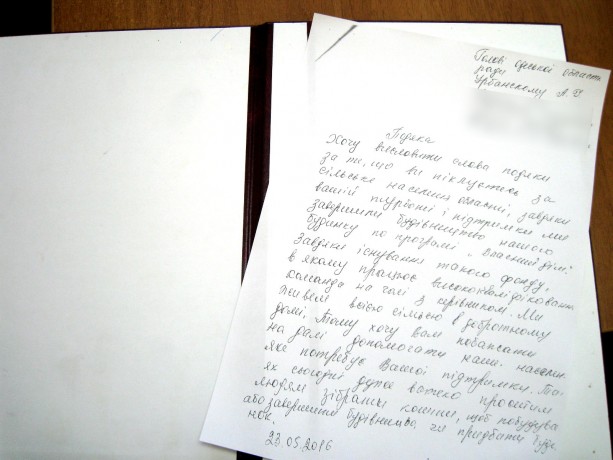 Голові Одеської області
ради
Урбанскому А
Подяка
Хочу висловити слова подяки
за те, що ви піклуєтесь за
сільське населення області, завдяки
вашій турботі і підтримки ми
завершили будівництво нашого
будинку по програмі „Власний дім"
Завдяки існування такого фонду,
в якому працює високо
команда на чолі з керівником. Ми
живем всією сім'єю в добротному
домі, тому хочу вам побажати
на далі допомогати наши насел
яке потребує Вашої підтримки. Та
як сьогодні дуже важко простим
людям зібрати кошти, щоб побудува
або завершити будівництво, чи придбати буди
нок.
23.05.2016